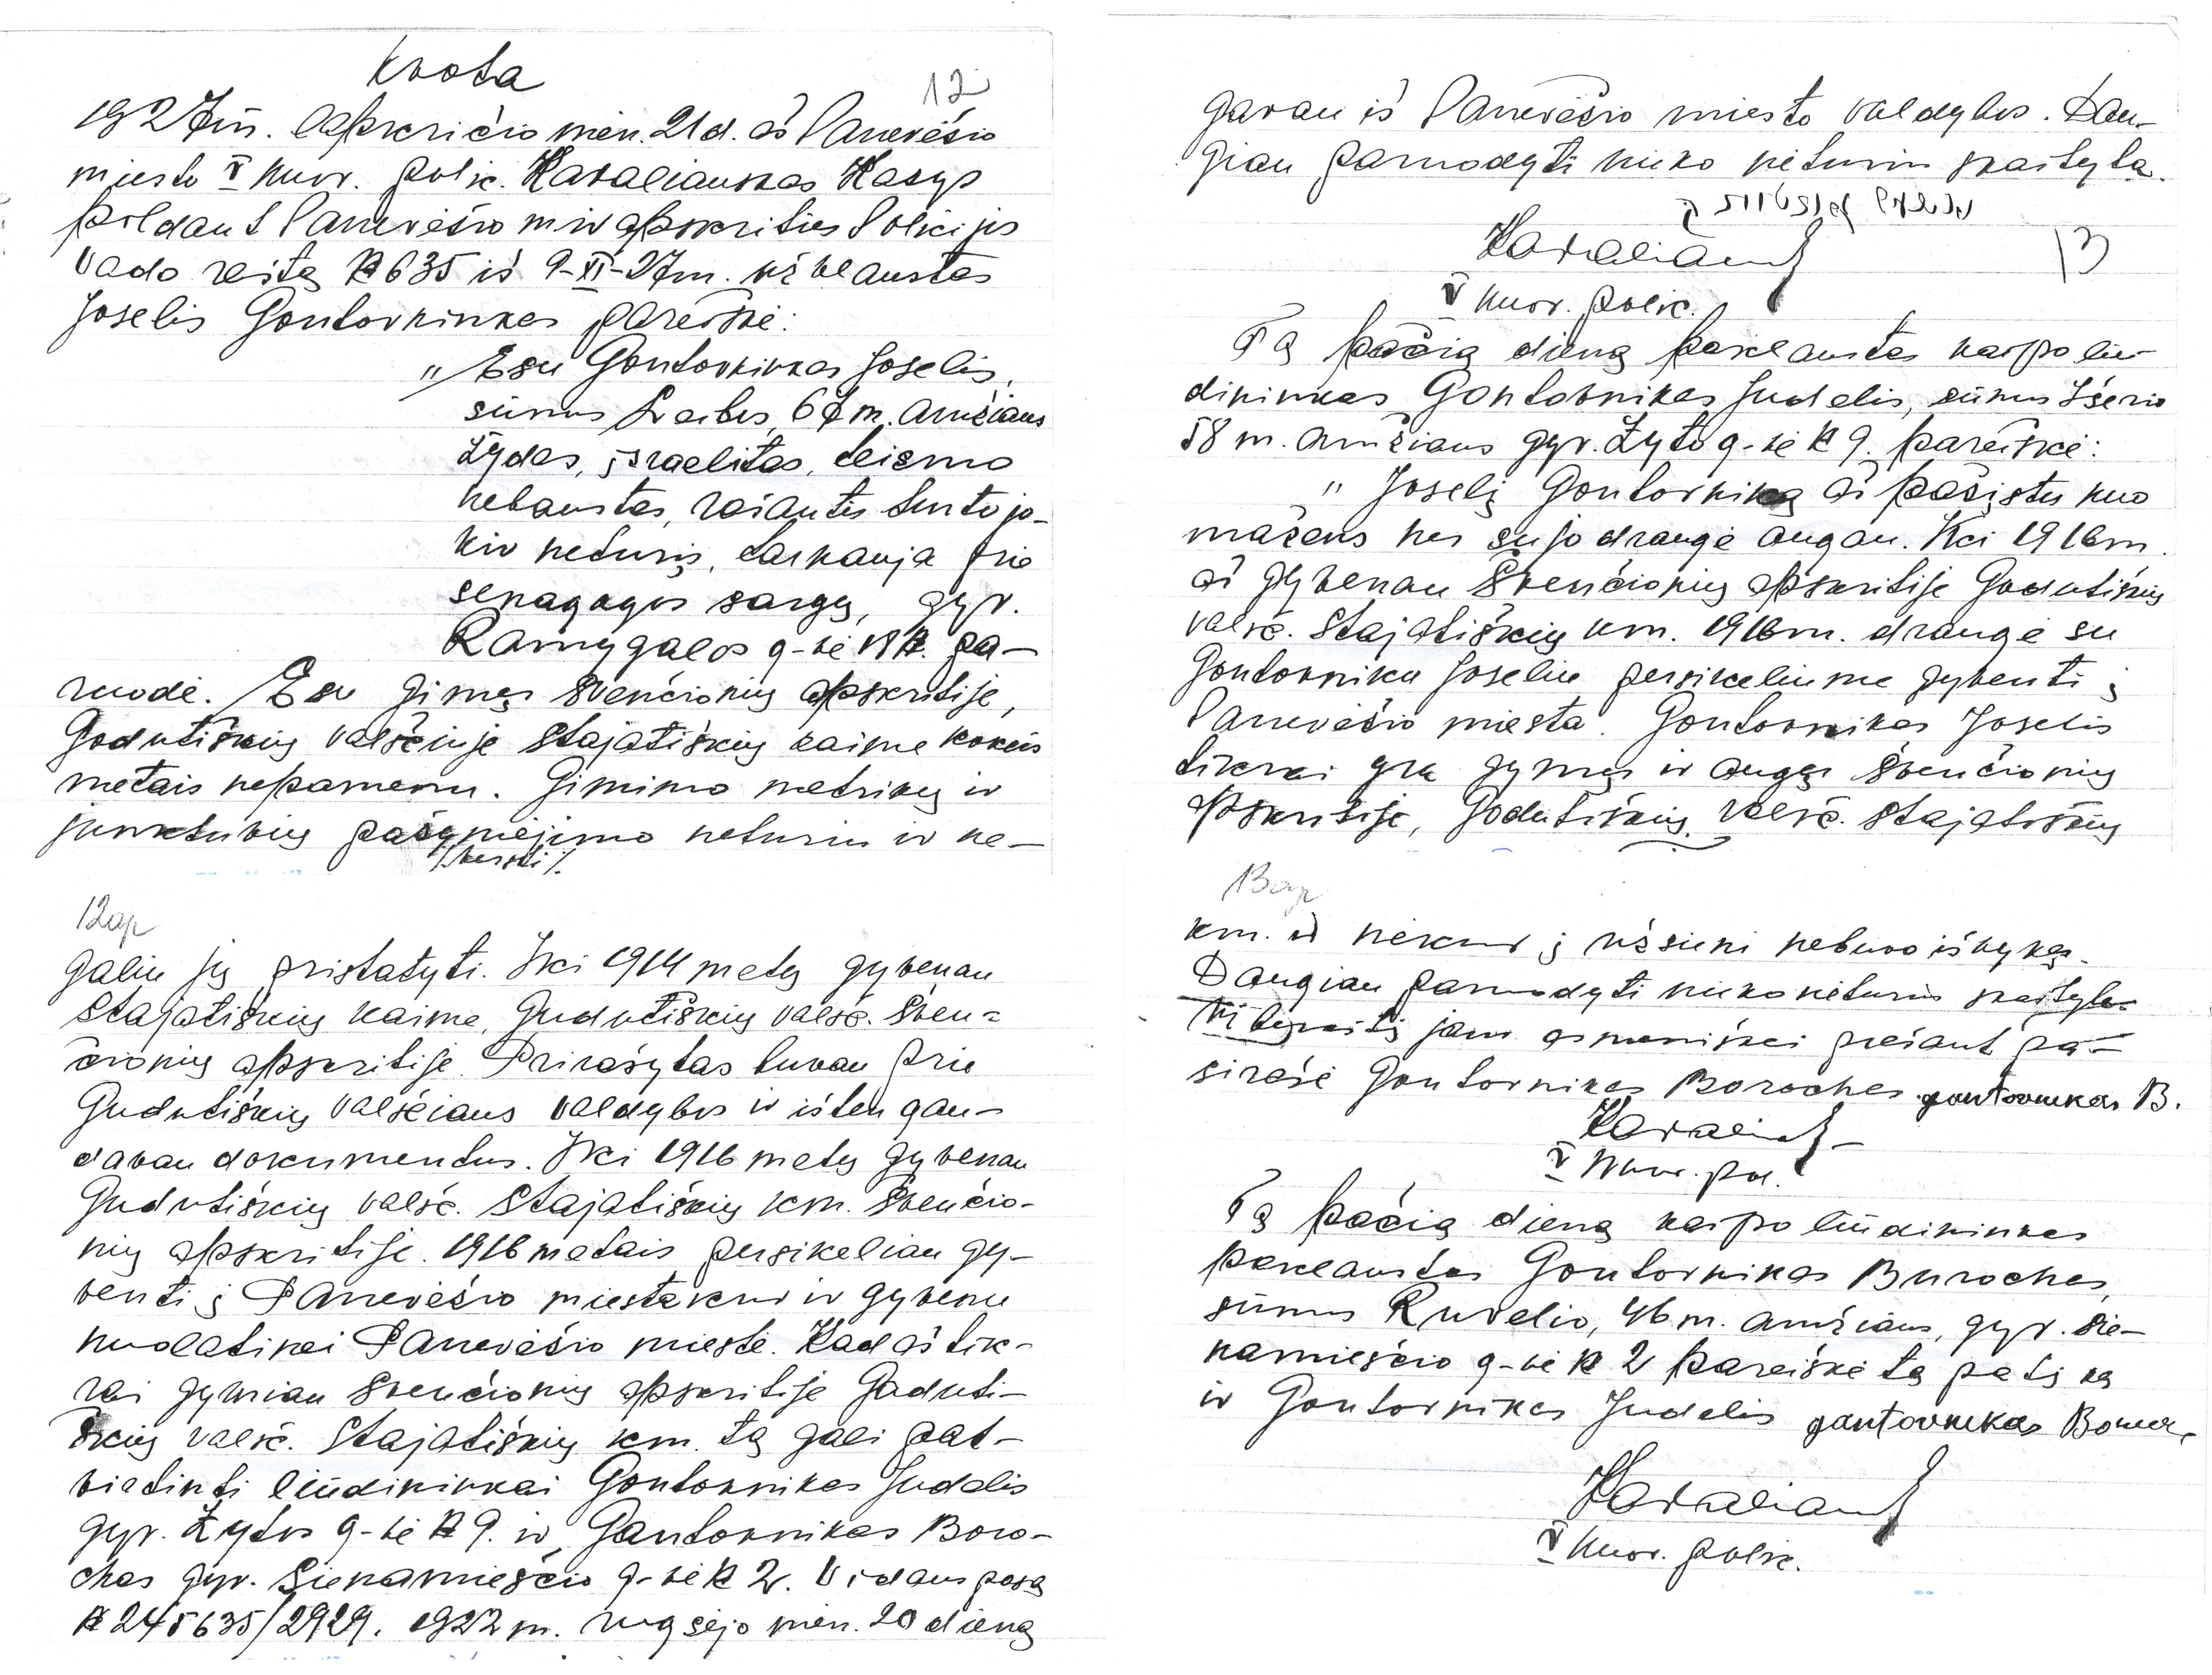 Kvota
12
1927 m. lapkričio mėn. 21 d. aš Panevėžio
miesto V nuov. polic. Kavaliauskas Kazys
pildant Panevėžio m ir apskrities Policijos
Vado raštą № 635 iš 9-XI-27 m. užklaustas
Joselis Gontovninkas pareiškė:
„Esu Gontovninkas Joselis,
sūnus Leibos, 67 m. amžiaus
žydas, israelitas, teismo
nebaustas, rašantis turto jo-
kio neturįs, tarnauja prie
senagogos sargų, gyv.
Ramygalos g-vė № pa-
ruodė. Esu gimęs Švenčionių apskritije,
Godutiškių valsčiuje Stajatiškių kaime kokiais
metais nepamenu. Gimimo metrikų ir
junktuvių pažymėjimo neturiu ir ne-
12ap
galiu jų pristatyti. Iki 1914 metų gyvenau
Stajatiškių kaime, Gudutiškių valsč. Šven-
čionių apskritije. Prirašytas buvau prie
Gudutiškių Valsčiaus Valdybos ir išten gau-
davau dokumentus. Iki 1916 metų gyvenau
Gudutiškių valsč. Stajatiškių km. Švenčio-
nių apskritije. 1916 metais persikėliau gy-
venti į Panevėžio miestą kur ir gyvenu
nuolatinai Panevėžio mieste. Kad aš tik-
rai gymiau Švenčionių apskritije Goduti-
škių valsč. Stajatiškių km. tą gali pat-
virtinti liūdininkai Gontovnikas Judelis
gyv. Žydos g-vė № 9. ir Gantovnikas Boro-
chas gyv. Sienamieščio g-vė № 2. Vidaus pasą
№ 245635/2929. 1922 m. rugsėjo mėn. 20 dieną
gavau iš Panevėžio miesto valdybos. Dau-
giau parnodyti nieko neturiu skaityta.
Kavaliausk
V nuov. polic.
13
Tą pačią dieną paklaustas kaipo liu-
dininkas Gontovnikas Judelis, sūnus Išerio
58 m. amžiaus gyv. Žyto g-vė № 9. pareiškė:
„Joselį Gontovniką aš pažįstu nuo
mažens nes su jo draugė augau. Iki 1916 m.
aš gyvenau Švenčionių apskritije Godutiškių
valsč. Stajatiškių km. 1916 m. draugė su
Gontovniku Joseliu persikeliume gyventi į
Panevėžio miestą. Gontovnikas Joselis
tikrai yra gymęs ir augęs Švenčionių
apskritije, Godutiškių valsč. Stajatiškių
13ap
km. ir niekur į užsienį nebuvo išvykęs.
Daugiau parnodyti nieko neturiu skaityta
jam asmeniškai prašant pa-
sirašė Gontovnikas Boroches gontovnikas B.
Kavaliausk
V Nuov. pol.
Tą pačią dieną kaipo liūdininkas
paklaustas Gontovnikas Buroches,
sūnus Ruvelio, 46 m. amžiaus, gyv. Sie-
namieščio g-vė № 2 pareiškė tą patį ką
ir Gontovnikas Judelis gontovnikas
Kavaliausk
V Nuov. polic.